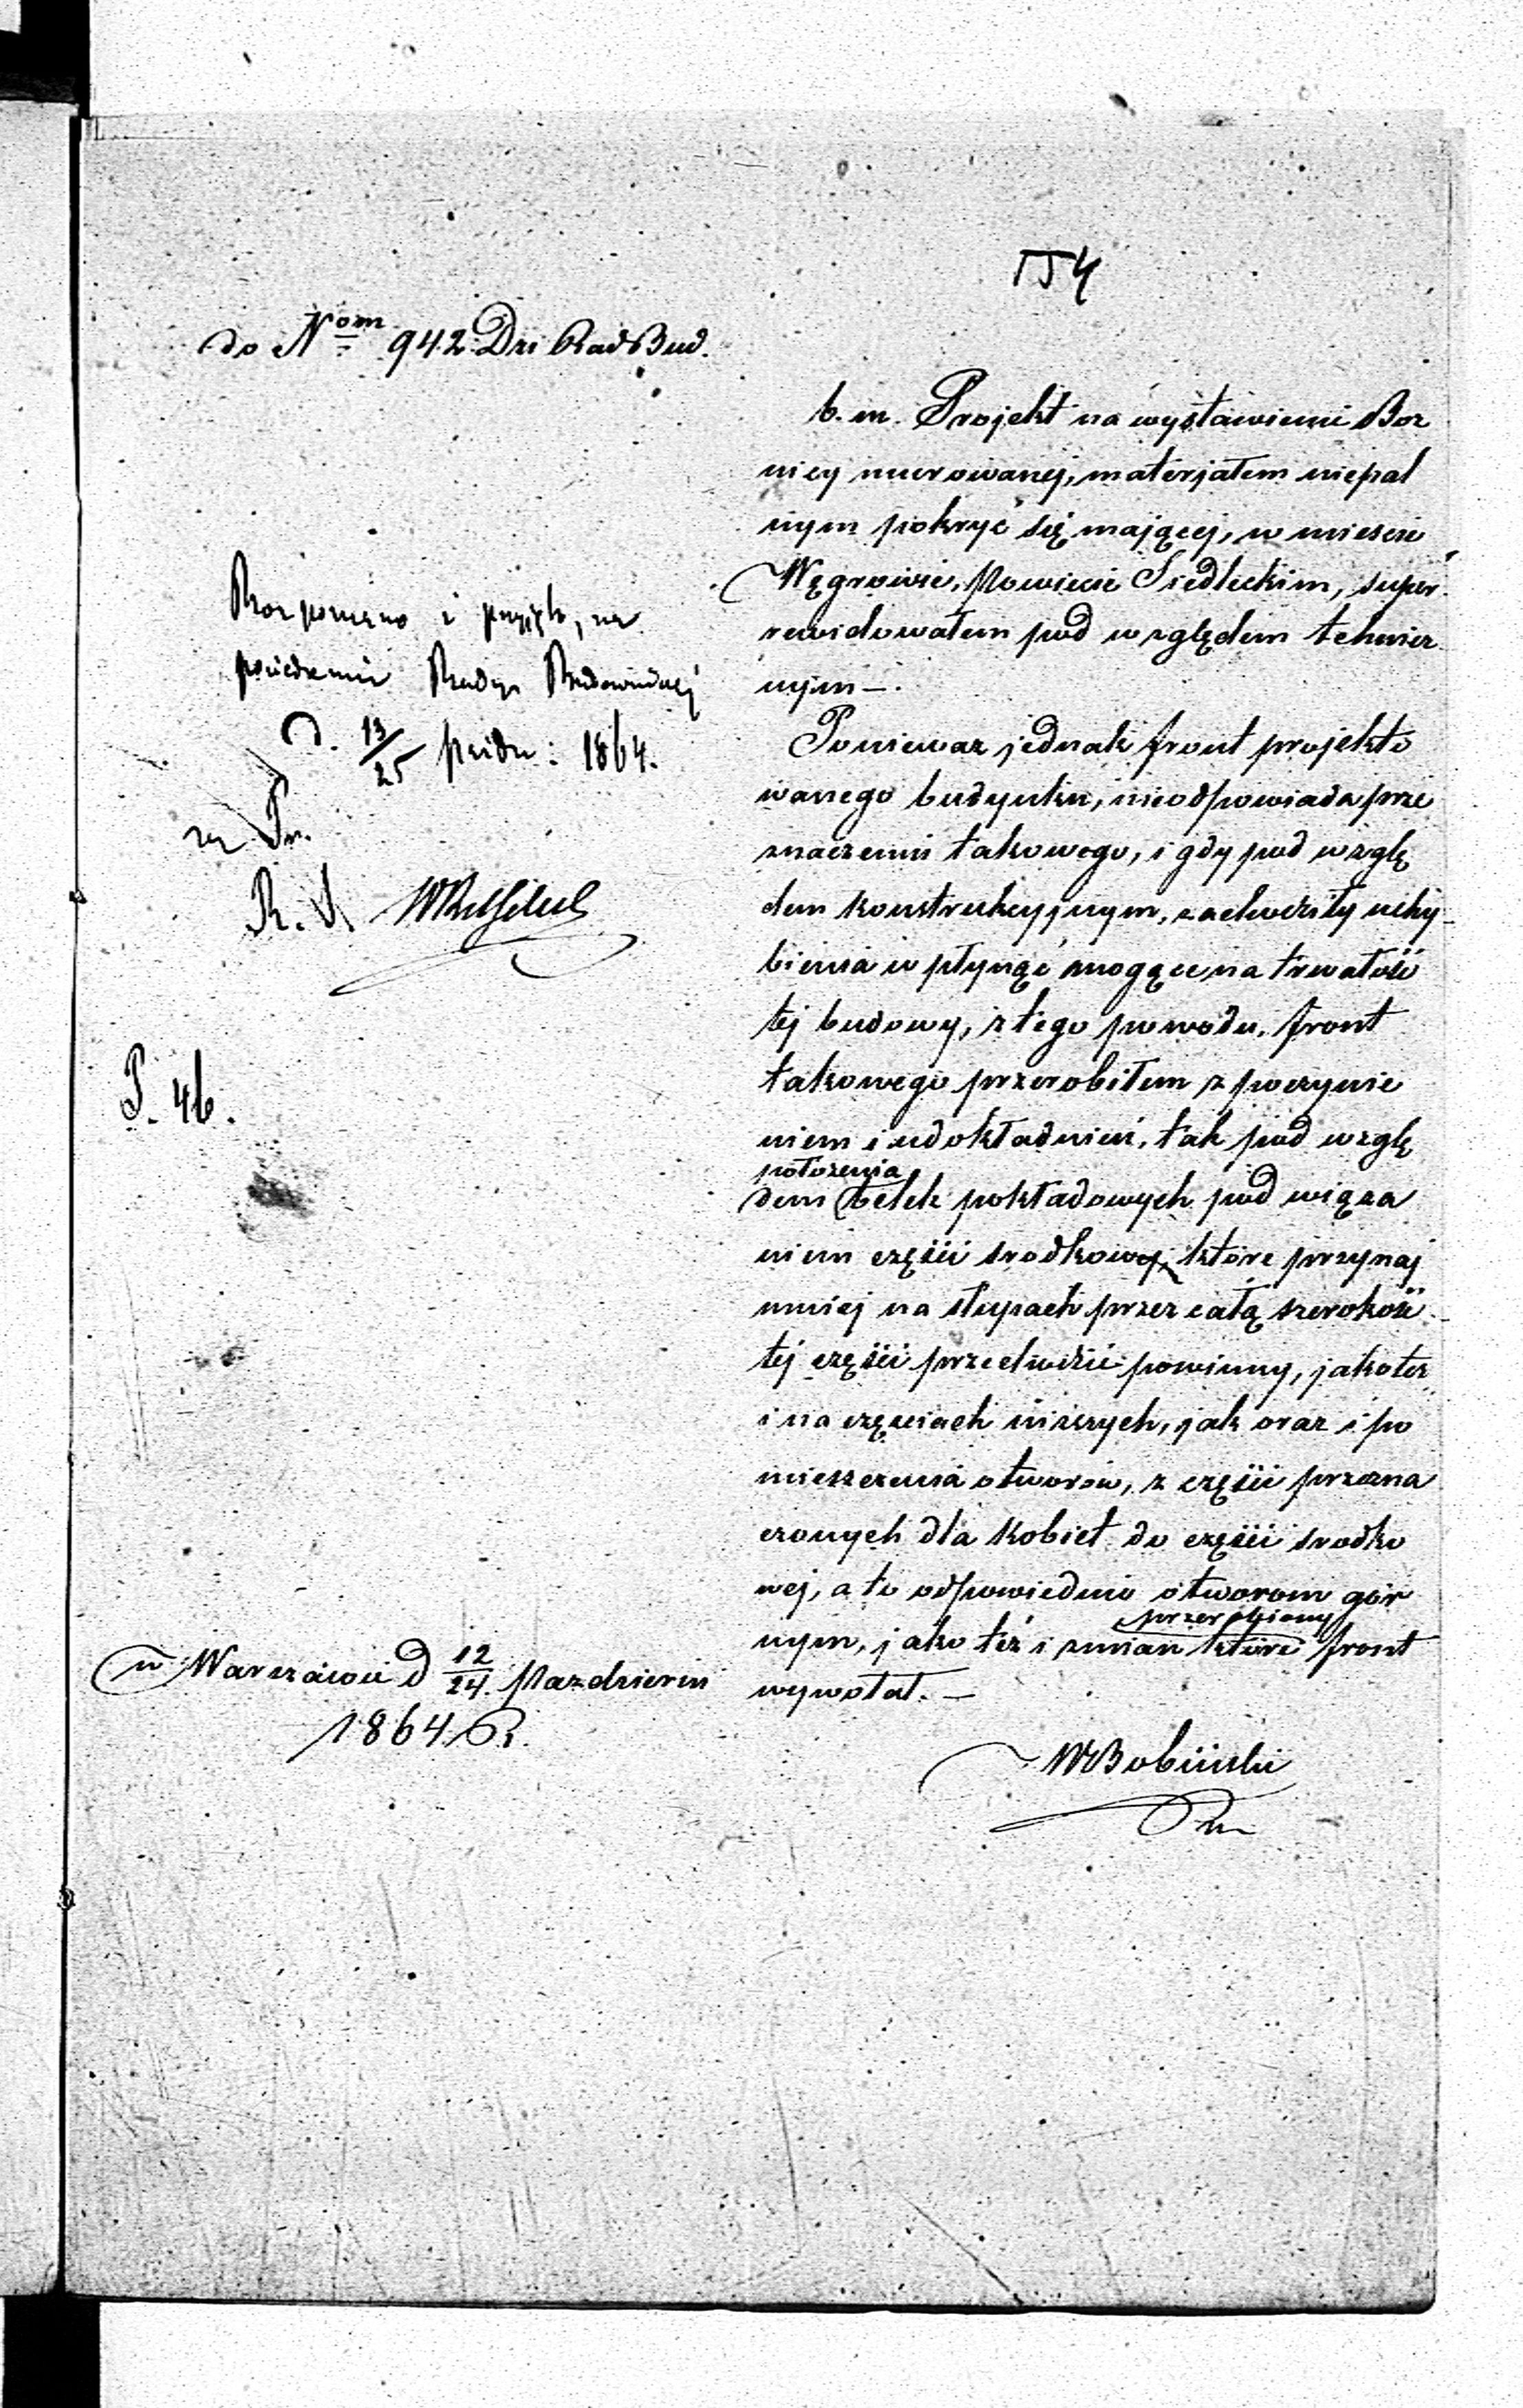 154
do N<sup>om</sup> 942 Dzi Rad Bud.
b. m. Projekt na wystawienie Boz
nicy murowanej, materjałem niepal
nym pokryć się mającej, w miescie
Węgrowie, Powiecie Siedleckim, super
rewidowałem pod względem technicz
nym —.
Ponieważ jednak front projekto
wanego budynku, nieodpowiada prze
znaczeniu takowego, i gdy pod wzglę
dem konstrukcyjnym, zachodziły uchy
bienia wpłynąć mogące na trwałość
tej budowy, z tego powodu, front
takowego przerobiłem z poczynie
niem i udokładnień, tak pod wzglę
dem położenia belek pokładowych pod wiąza
niem części srodkowej, które przynaj
mniej na słupach przez całą szerokość
tej części przechodzić powinny, jakotez
i na częsciach niższych, jak oraz i po
mieszczenia otworów, z części przezna
czonych dla kobiet do części srodko
wej, a to odpowiednio otworom gór
nym, jako też i zmian które przerobiony front
wywołał. —
W Bobiński
Rozpoznano i przyjęto, na
posiedzeniu Rady Budowniczej
d. 13/25 Paźdz: 1864.
za Pr.
R. S.
P. 46.
w Warszawie d 12/24. Pazdziernı
1864 R.